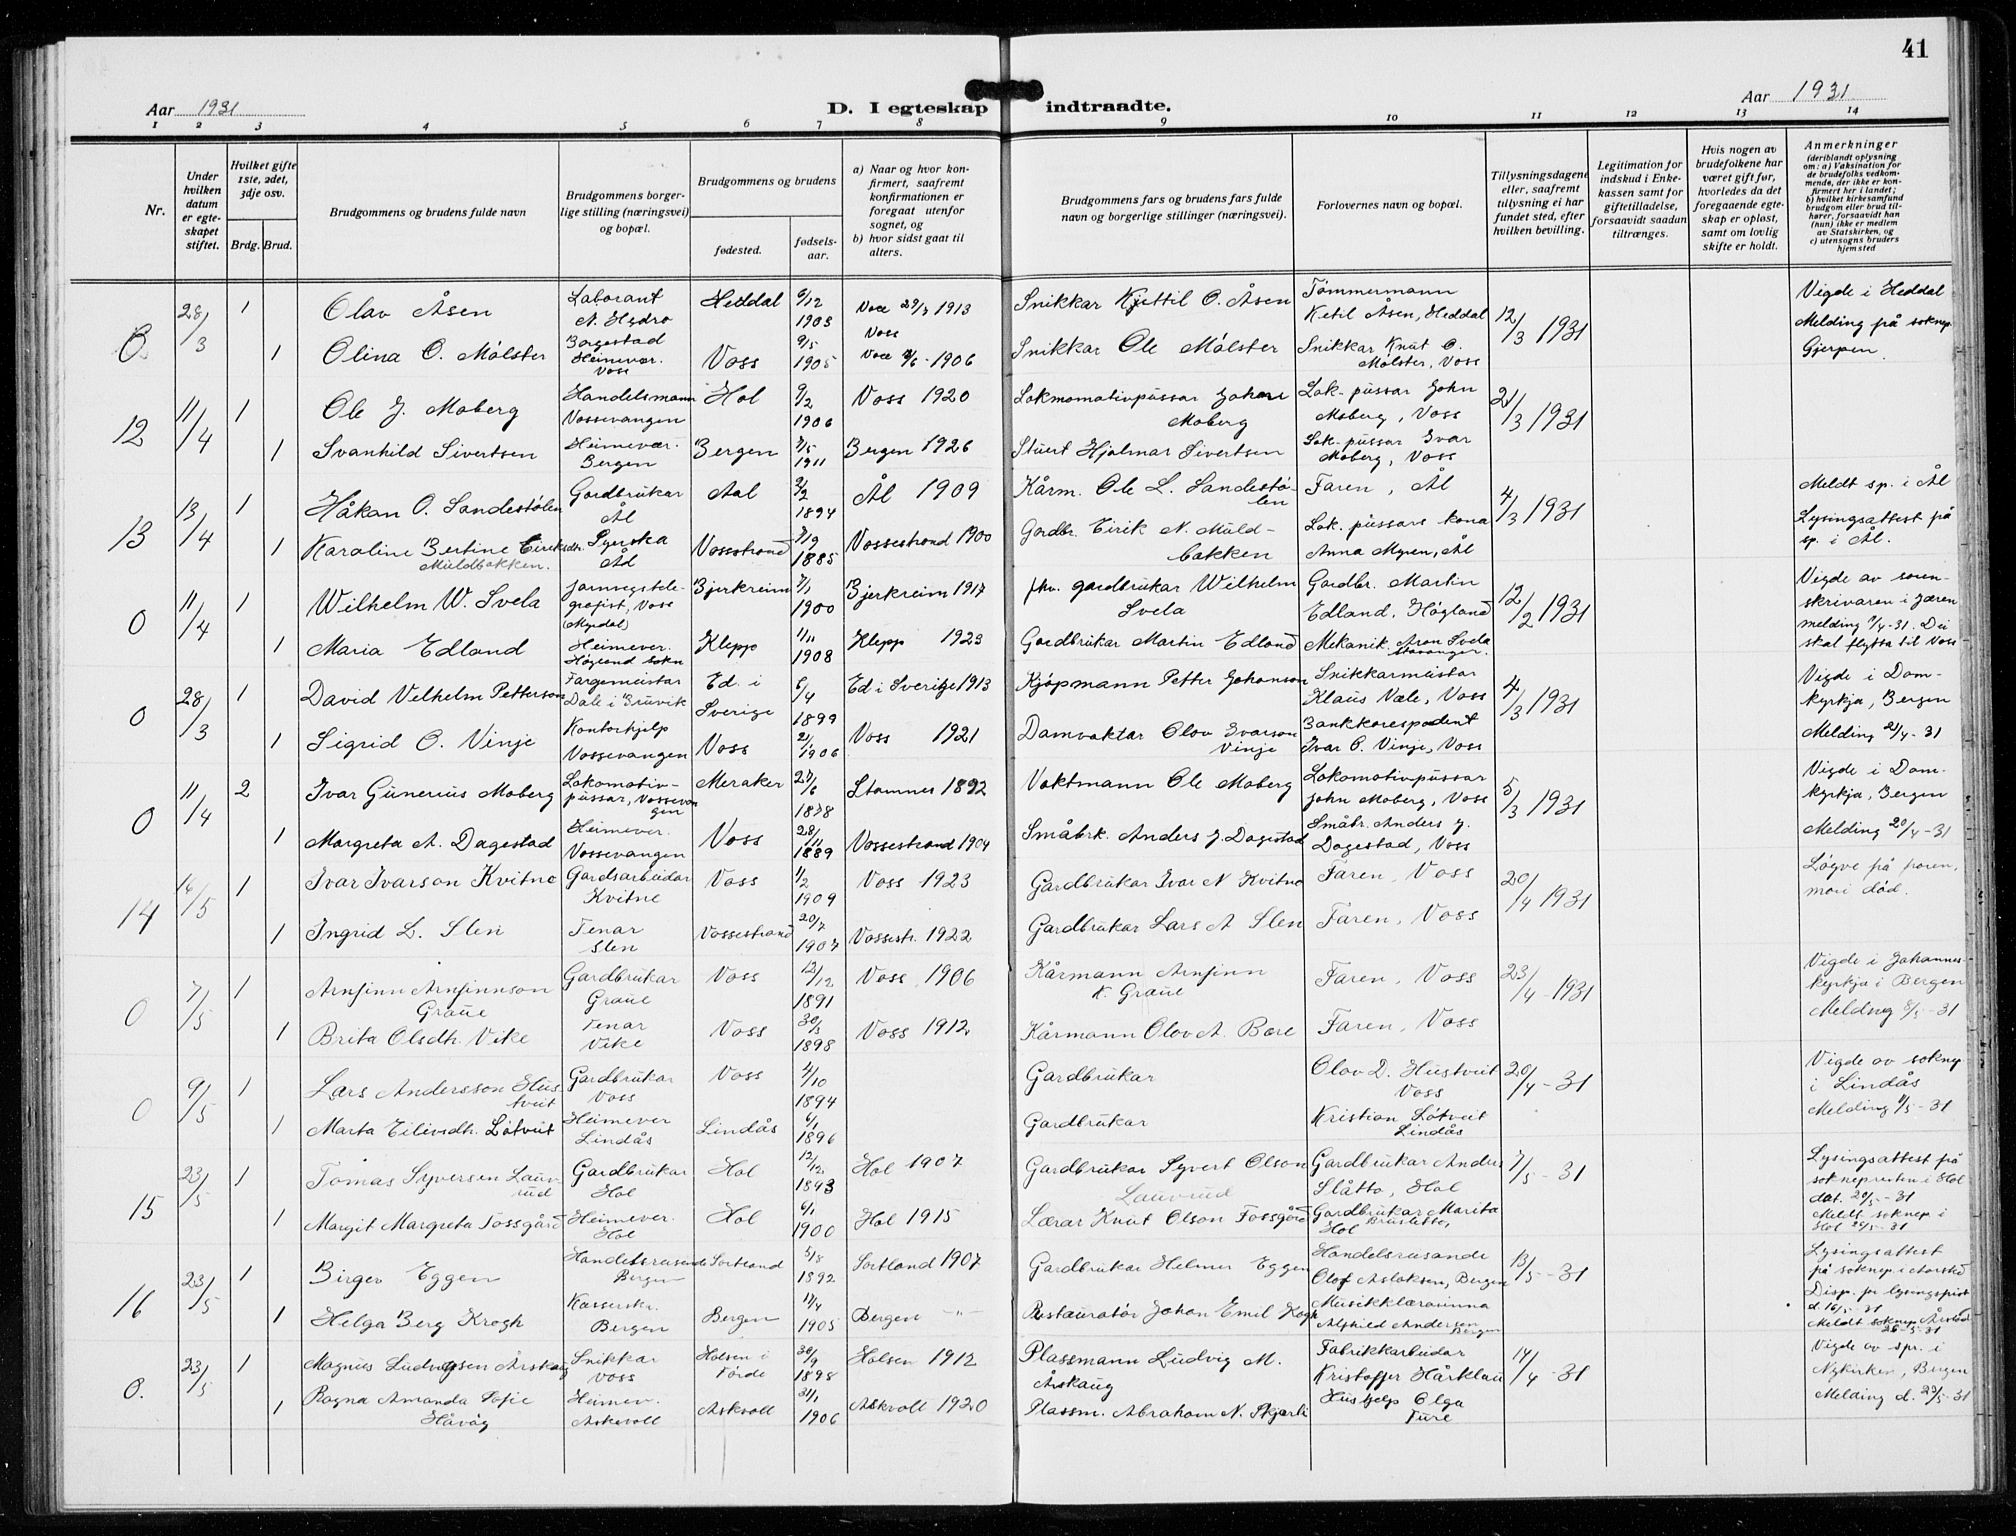 41
Aar 1931
D. I egteskap indtraadte.
Aar 1931
1 2 3 4 5 6 7 8 9 10 11 12 13 14
Nr.
Under hvilken datum er egteskapet stiftet.
Hvilket gifte 1ste, 2det, 3dje osv.
Brdg. Brud.
Brudgommens og brudens fulde navn
Brudgommens borgerlige stilling (næringsvei) og bopæl.
Brudgommens og brudens
fødested.
fødselsaar.
a) Naar og hvor konfirmert, saafremt konfirmationen er foregaat utenfor sognet, og
b) hvor sidst gaat til alters.
Brudgommens fars og brudens fars fulde navn og borgerlige stillinger (næringsvei).
Forlovernes navn og bopæl.
Tillysningsdagene eller, saafremt tillysning ei har fundet sted, efter hvilken bevilling.
Legitimation for indskud i Enkekassen samt for giftetilladelse, forsaavidt saadan tiltrænges.
Hvis nogen av brudefolkene har været gift før, hvorledes da det foregaaende egteskap er opløst, samt om lovlig skifte er holdt.
Anmerkninger
(deriblandt oplysning om: a) Vaksination for de brudefolks vedkommende, der ikke er konfirmert her i landet; b) hvilket kirkesamfund brudgom eller brud tilhører, forsaavidt han (hun) ikke er medlem av Statskirken, og c) utensogns bruders hjemsted
0. 28/3 1 Olav Åsen Laborant N. Hydro Borgestad Heddal 6/12 1903 Voss 29/3 1913 Voss Snikkar Kjettil O. Åsen Tømmermann Ketil Åsen, Heddal 12/3 1931 Vigde i Heddal Melding på soknep. Gjerpen.
1 Olina O. Mølster Heimevær. Voss Voss 9/5 1905 1906 Snikkar Ole Mølster Snikkar Knut O. Mølster, Voss
12 11/4 1 Ole J. Moberg Handelsmann Vossevangen Hol 9/2 1906 Voss 1920 Lokmomotivpussar Johan Moberg Lok-pussar John Moberg, Voss 21/3 1931
1 Svanhild Sivertsen Heimevær. Bergen Bergen 7/5 1911 Bergen 1926 Stuert Hjalmar Sivertsen Lok-pussar Ivar Moberg, Voss
13 13/4 1 Håkon O. Sandestølen Gardbrukar Ål Aal 1894 Ål 1909 Kårm. Ole L. Sandestølen Faren, Ål 4/3 1931 Meldt sp. i Ål Lysingsattest på sp. i Ål.
1 Karoline Bertine Eiriksdtr. Muldbakken. Syerska Ål Vossestrand 7/9 1885 Vossestrand 1900 Gardbr. Eirik N. Muldbakken Lok. pussars kona Anna Myren, Ål
0 11/4 1 Wilhelm W. Svela Jarnvegstelegrafist, Voss (Myrdal) Bjerkreim 7/1 1900 Bjerkreim 1917 fhv. gardbrukar Wilhelm Svela Gardbr. Martin Edland, Høgland 12/2 1931 Vigde av sorenskrivaren i Jæren melding 9/4-31. Dei skal flytta til Voss
1 Maria Edland Heimever. Høgland sokn Klepp 1/11 1908 Klepp 1923 Gardbrukar Martin Edland Mekanik. Aron Svela Stavanger.
0 28/3 1 David Velhelm Petterson Fargemeistar Dale i Bruvik Ed. i Sverige 6/4 1899 Ed i Sverige 1913 Kjøpmann Petter Johanson Snikkarmeistar Klaus Væle, Voss 4/3 1931 Vigde i Domkyrkja, Bergen Melding 21/4-31
1 Sigrid O. Vinje Kontorhjelp Vossevangen Voss 21/1 1906 Voss 1921 Damvaktar Olov Ivarson Vinje Bankkorespodent Ivar O. Vinje, Voss
0 11/4 2 Ivar Gunerius Moberg Lokomotivpussar, Vossevangen Meraker 27/6 1878 Stamnes 1892 Vaktmann Ole Moberg Lokomotivpussar John Moberg, Voss 5/3 1931 Vigde i Domkyrkja, Bergen Melding 20/4-31
1 Margreta A. Dagestad Heimever. Vossevangen Voss 28/11 1889 Vossestrand 1904 Småbrk. Anders J. Dagestad Småbr. Anders J. Dagestad, Voss
14 16/5 1 Ivar Ivarson Kvitne Gardsarbeidar Kvitne Voss 1/2 1909 Voss 1923 Gardbrukar Ivar N. Kvitne Faren, Voss 20/4 1931 Løyve på faren, mori død.
1 Ingrid L. Slen Tenar Slen Vossestrand 20/7 1907 Vossestr. 1922 Gardbrukar Lars A Slen Faren, Voss
0 7/5 1 Arnfinn Arnfinnson Graue Gardbrukar Graue Voss 12/12 1891 Voss 1906 Kårmann Arnfinn K. Graue Faren, Voss 23/4-1931 Vigde i Johanneskyrkja i Bergen Melding 8/5-31
1 Brita Olsdtr. Vike Tenar Vike Voss 30/3 1898 Voss 1912 Kårmann Olov A. Børe Faren, Voss
0 9/5 1 Lars Andersson Hustveit Gardbrukar Voss Voss 4/10 1894 Gardbrukar Olov D. Hustveit Voss 20/4-31 Vigde av soknep i Lindås Melding 11/5-31
1 Marta Eilivsdtr. Løtveit Heimever Lindås Lindås 6/1 1896 Gardbrukar Kristian Løtveit Lindås
15 23/5 1 Tomas Syversen Lauvrud Gardbrukar Hol Hol 12/12 1893 Hol 1907 Gardbrukar Syvert Olson Lauvrud Gardbrukar Anders Slåtto, Hol 7/5-31 Lysingsattest på soknepresten i Hol dat. 20/5-31 Meldt soknep. i Hol 26/5-31
1 Margit Margreta Tossgård Heimever. Hol Hol 6/1 1900 Hol 1915 Lærar Knut Olson Fossgård Gardbrukar Marita Brusletto, Hol
16 23/5 1 Birger Eggen Handelsreisende Bergen Sortland 5/8 1892 Sortland 1907 Gardbrukar Helmer Eggen Handelsreisande Olaf Aslaksen, Bergen 13/5-31 Lysingsattest på soknep. i Årstad Disp. fr lysingsfrist d. 16/5-31 Meldt soknep Årstad 26-5-31
1 Helga Berg Krogh Kasserske. Bergen Bergen 11/4 1905 Bergen -"- Restauratør Johan Emil Krogh Musikklærarinna Alfhild Andersen Bergen
0. 23/5 1 Magnus Ludvigsen Årskaug Snikkar Voss Holsen i Førde 30/9 1898 Holsen 1912 Plassmann Ludvig M. Årskaug Fabrikkarbeidar Kristoffer Hårklau 14/4-31 Vigde av sp. i Nykirken, Bergen Melding d. 23/5-31
1 Ragna Amanda Sofie Håvåg Heimev. Askevoll Askvoll 31/1 1906 Askvoll 1920 Plassm. Abraham N. Skjerli Hushjelp Olga Ture